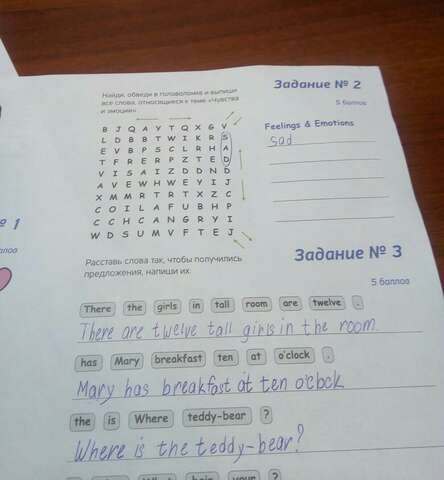 Найди, обведи в головоломке и выпиши
все слова, относящиеся к теме «Чувства
и эмоции»
Задание № 2
5 баллов
Feelings & Emotions
sad
B J Q A Y T Q X G V
L D B B T W I K R S
E V B P S C L R H A
T F R E R P Z T E D
V I S A I Z D D N D
A V E W H W E Y I J
X M M R T R T X Z C
C O I L A F U B H P
C C H C A N G R Y I
W D S U M V F T E J
№ 1
Задание № 3
5 баллов
Расставь слова так, чтобы получились
предложения, напиши их.
There the girls in tall room are twelve .
There are twelve tall girls in the room
has Mary breakfast ten at o'clock .
Mary has breakfast at ten o'clock
the is Where teddy-bear ?
Where is the teddy-bear?
your ?